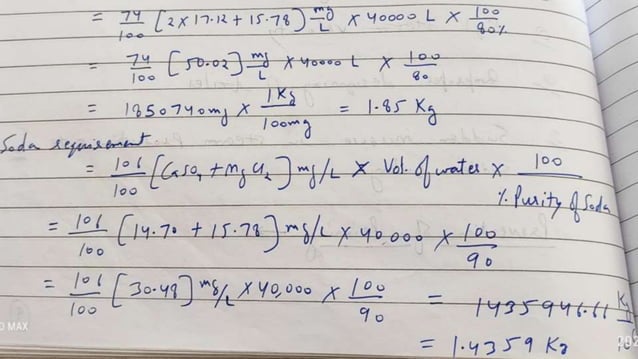 = 74/100 [2×17.12 + 15.78] mg/L × 40000 L × 100/80%
= 74/100 [50.02] mg/L × 40000 L × 100/80
= 1850740mg × 1Kg/100mg = 1.85 Kg
Soda requirement
= 106/100 [CaSO4 + MgCl2] mg/L × Vol. of water × 100/% Purity of Soda
= 106/100 [14.70 + 15.78] mg/L × 40,000 × 100/90
= 106/100 [30.48] mg/L × 40,000 × 100/90 = 1435946.61 Kg
= 1.4359 Kg
O MAX